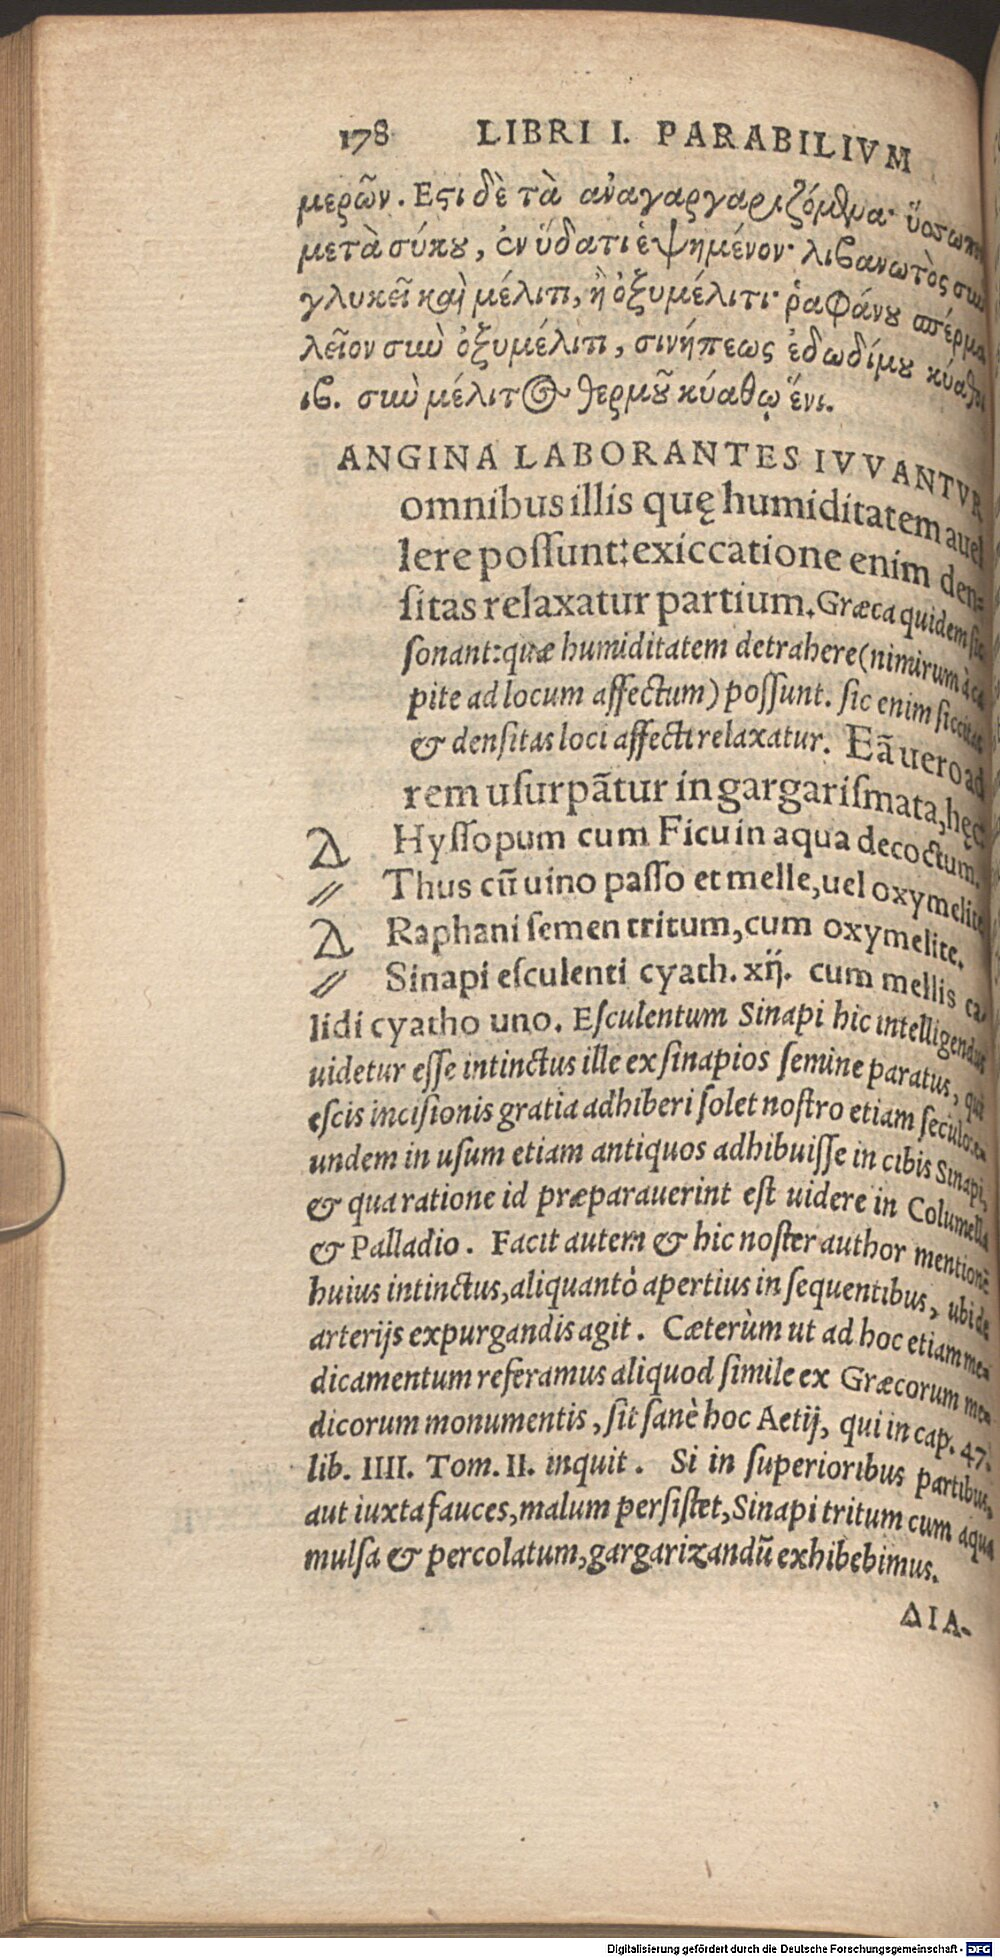 178 LIBRI I. PARABILIVM
μερῶν. Εϛι δὲ τὰ ἀναγαργαριζόμενα· ὕσσωπον
μετὰ σύκου, ἐν ὕδατι ἑψημένον· λιβανωτὸς σὺν
γλυκεῖ καὶ μέλιτι, ἢ ὀξυμέλιτι· ῥαφάνου σπέρμα
λεῖον σὺν ὀξυμέλιτι, σινήπεως ἐδωδίμου κύαθοι
ιβ. σὺν μέλιτος θερμοῦ κύαθῳ ἕνι.
ANGINA LABORANTES IVVANTVR
omnibus illis quę humiditatem auel
lere poſſunt: exiccatione enim den-
ſitas relaxatur partium. Græca quidem ſic
ſonant: quæ humiditatem detrahere (nimirum à ca
pite ad locum affectum) poſſunt. ſic enim ſiccitas
& denſitas loci affecti relaxatur. Eã uero ad
rem uſurpãtur in gargariſmata, hęc:
Hyſſopum cum Ficu in aqua decoctum.
〃 Thus cũ uino paſſo et melle, uel oxymelite
Raphani ſemen tritum, cum oxymelite.
〃 Sinapi eſculenti cyath. xij. cum mellis ca-
lidi cyatho uno. Eſculentum Sinapi hic intelligendus
uidetur eſſe intinctus ille ex ſinapios ſemine paratus, qui
eſcis inciſionis gratia adhiberi ſolet noſtro etiam ſeculo: e-
undem in uſum etiam antiquos adhibuiſſe in cibis Sinapi,
& qua ratione id præparauerint eſt uidere in Columella
& Palladio. Facit autem & hic noſter author mentionẽ
huius intinctus, aliquantò apertius in ſequentibus, ubi de
arterijs expurgandis agit. Cæterùm ut ad hoc etiam me-
dicamentum referamus aliquod ſimile ex Græcorum me-
dicorum monumentis, ſit ſanè hoc Aetij, qui in cap. 47.
lib. IIII. Tom. II. inquit. Si in ſuperioribus partibus,
aut iuxta fauces, malum perſiſtet, Sinapi tritum cum aqua
mulſa & percolatum, gargarizandũ exhibebimus.
ΔΙΑ-
Digitalisierung gefördert durch die Deutsche Forschungsgemeinschaft - DFG